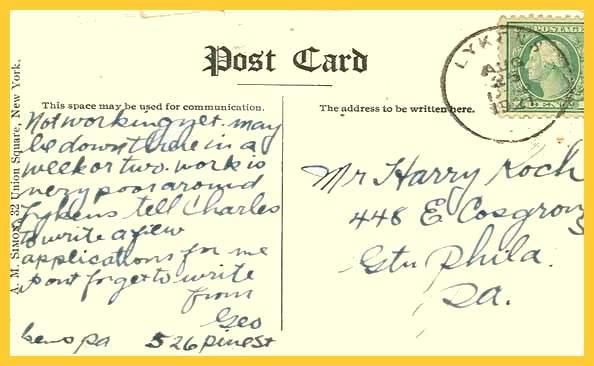 Post Card
This space may be used for communication.
The address to be written here.
A. M. Simon, 32 Union Square, New York.
LYKENS
Not working yet. may
be down there in a
week or two. work is
very poor around
Lykens tell Charles
to write a few
applications for me
dont forget to write
from
Geo
526 pine St
pa
Mr Harry Koch
448 E Cosgrove
Gtn Phila.
Pa.